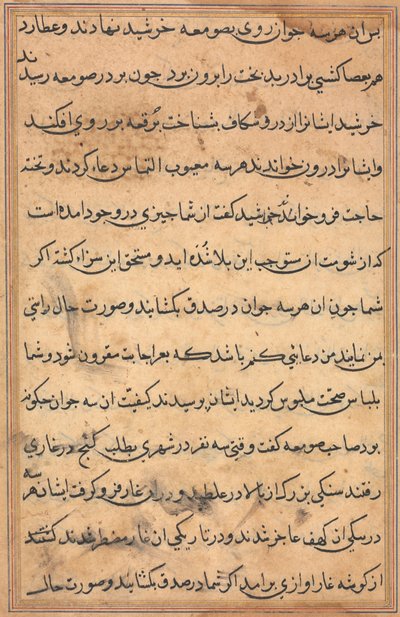 بران هر سه جوان روی بصومعه خرشید نهادند و عطارد
هم بعصا کشیی برادر بدبخت را برون برد چون بر در صومعه رسیدند
خرشید ایشانرا از در و شکاف بشناخت برقعه بر روی افکند
و ایشانرا درون خواندند هر سه معیوب التماس دعا کردند و تخته
حاجت فرو خواندند خرشید کفت از شما چیزی در وجود امده است
که از شومت ان ستوجب این بلا شده اید و مستحق این سزاء کشته اکر
شما چون ان هر سه جوان در صدق بکشایند و صورت حال راستی
بمن نمایند من دعائی کنم باشد که بعز اجابت مقرون شود و شما
بلباس صحت ملبوس کردید ایشان پرسیدند کیفیت ان سه جوان چکونه
بود صاحب صومعه کفت وقتی سه نفر در شهری بطلب کنج در غاری
رفتند سنکی بزرک از بالا در غلطید و در ان غار فرو کرفت ایشان هر سه
در سکی ان کهف عاجز شدند و در تاریکی ان غار مضطر شدند کفتند
از کوشه غار اوازی برامد اکر شما در صدق بکشایند و صورت حال